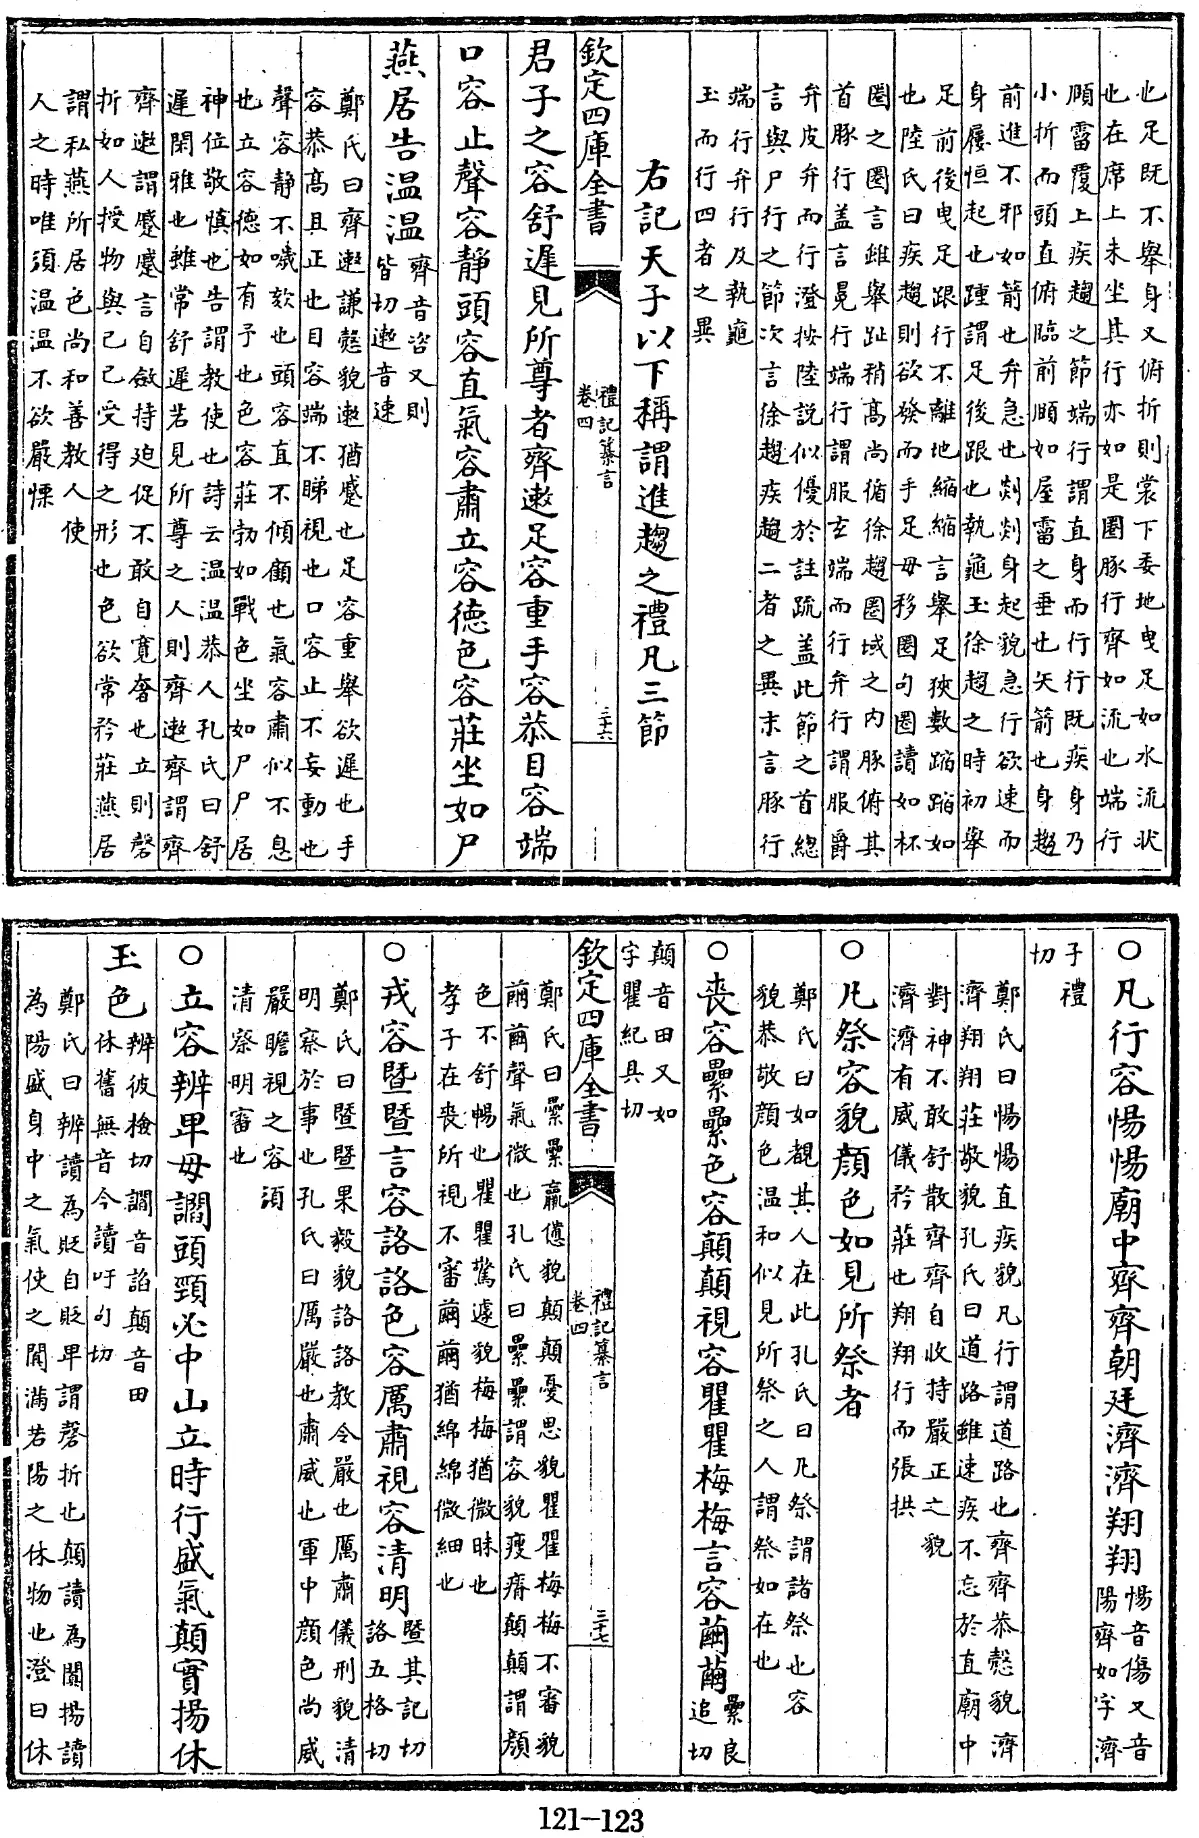 也足既不舉身又俯折則裳下委地曳足如水流狀
也在席上未坐其行亦如是圈豚行齊如流也端行
頤霤覆上疾趨之節端行謂直身而行行既疾身乃
小折而頭直俯臨前頤如屋霤之垂也矢箭也身趨
前進不邪如箭也弁急也剡剡身起貌急行欲速而
身屨恒起也踵謂足後跟也執龜玉徐趨之時初舉
足前後曳足跟行不離地縮縮言舉足狹數蹜蹜如
也陸氏曰疾趨則欲發而手足毋移圈句圈讀如杯
圈之圈言雖舉趾稍高尚循徐趨圈域之内豚俯其
首豚行盖言冕行端行謂服玄端而行弁行謂服爵
弁皮弁而行澄按陸説似優於註疏盖此節之首緫
言與尸行之節次言徐趨疾趨二者之異末言豚行
端行弁行及執龜
玉而行四者之異
右記天子以下稱謂進趨之禮凡三節
欽定四庫全書
禮記纂言
卷四
三十六
君子之容舒遲見所尊者齊遫足容重手容恭目容端
口容止聲容靜頭容直氣容肅立容徳色容莊坐如尸
燕居告温温
齊音咨又則
皆切遫音速
鄭氏曰齊遫謙慤貌遫猶蹙也足容重舉欲遲也手
容恭髙且正也目容端不睇視也口容止不妄動也
聲容靜不噦欬也頭容直不傾顧也氣容肅似不息
也立容徳如有予也色容莊勃如戰色坐如尸尸居
神位敬慎也告謂教使也詩云温温恭人孔氏曰舒
遲閑雅也雖常舒遲若見所尊之人則齊遫齊謂齊
齊遫謂蹙蹙言自斂持迫促不敢自寛奢也立則磬
折如人授物與己己受得之形也色欲常矜莊燕居
謂私燕所居色尚和善教人使
人之時唯須温温不欲嚴慄
〇凡行容惕惕廟中齊齊朝廷濟濟翔翔
惕音傷又音
陽齊如字濟
子禮
切
鄭氏曰惕惕直疾貌凡行謂道路也齊齊恭慤貌濟
濟翔翔莊敬貌孔氏曰道路雖速疾不忘於直廟中
對神不敢舒散齊齊自收持嚴正之貌
濟濟有威儀矜莊也翔翔行而張拱
〇凡祭容貌顔色如見所祭者
鄭氏曰如覩其人在此孔氏曰凡祭謂諸祭也容
貌恭敬顔色温和似見所祭之人謂祭如在也
〇喪容纍纍色容顛顛視容瞿瞿梅梅言容繭繭
纍良
追切
顛音田又如
字瞿紀具切
欽定四庫全書
禮記纂言
卷四
三十七
鄭氏曰纍纍羸憊貌顛顛憂思貌瞿瞿梅梅不審貌
繭繭聲氣微也孔氏曰纍纍謂容貌瘦瘠顛顛謂顔
色不舒暢也瞿瞿驚遽貌梅梅猶微昧也
孝子在喪所視不審繭繭猶綿綿微細也
〇戎容暨暨言容詻詻色容厲肅視容清明
暨其記切
詻五格切
鄭氏曰暨暨果毅貌詻詻教令嚴也厲肅儀刑貌清
明察於事也孔氏曰厲嚴也肅威也軍中顔色尚威
嚴瞻視之容須
清察明審也
〇立容辨卑毋讇頭頸必中山立時行盛氣顛實揚休
玉色
辨彼檢切讇音諂顛音田
休舊無音今讀吁句切
鄭氏曰辨讀為貶自貶卑謂磬折也顛讀為闐揚讀
為陽盛身中之氣使之闐滿若陽之休物也澄曰休
121—123